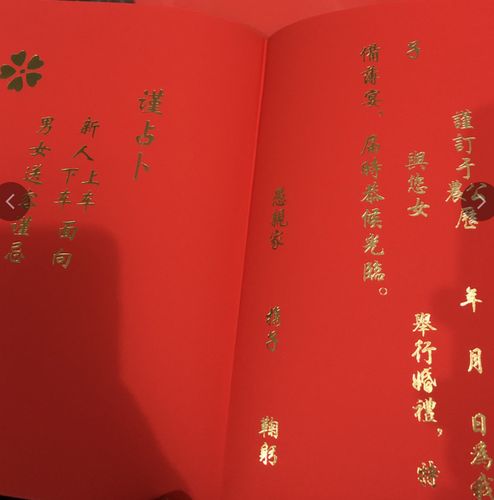 謹訂于公農曆 年 月 日為我
子 與您女 舉行婚禮，特
備薄宴，屆時恭候光臨。
愚親家 攜子 鞠躬
谨占卜
新人上車下車面向
男女送客谨忌